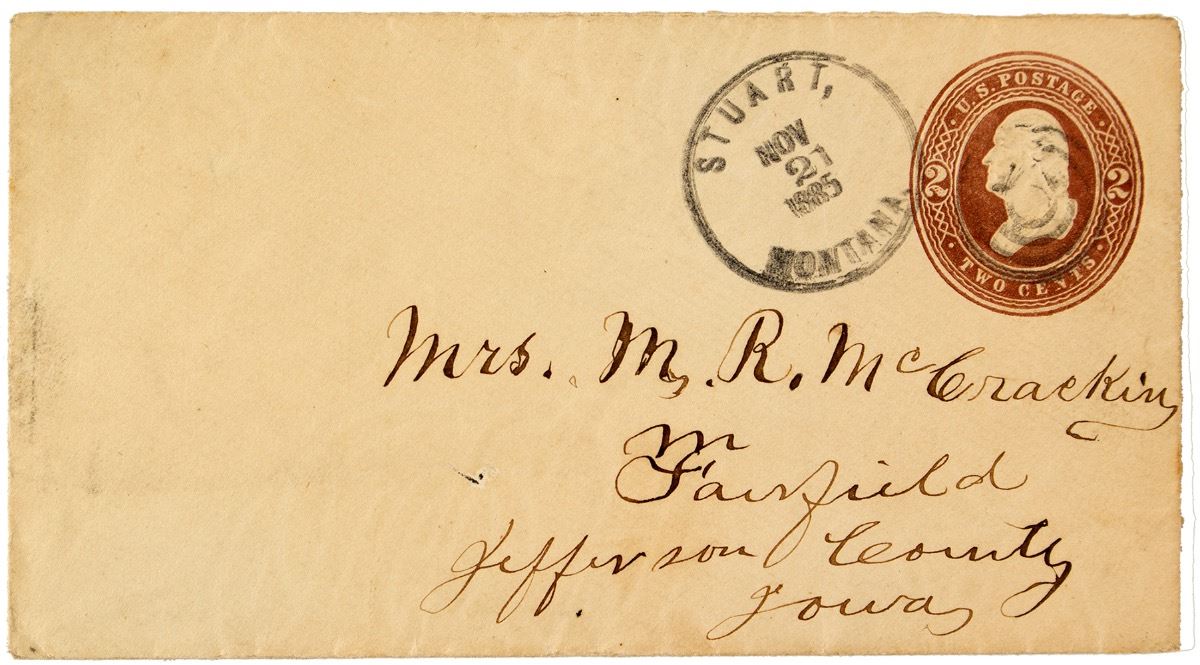 STUART,
NOV
21
1885
MONTANA.
U.S. POSTAGE
2 2
TWO CENTS
Mrs. M. R. McCrackin
Fairfield
Jefferson County
Iowa